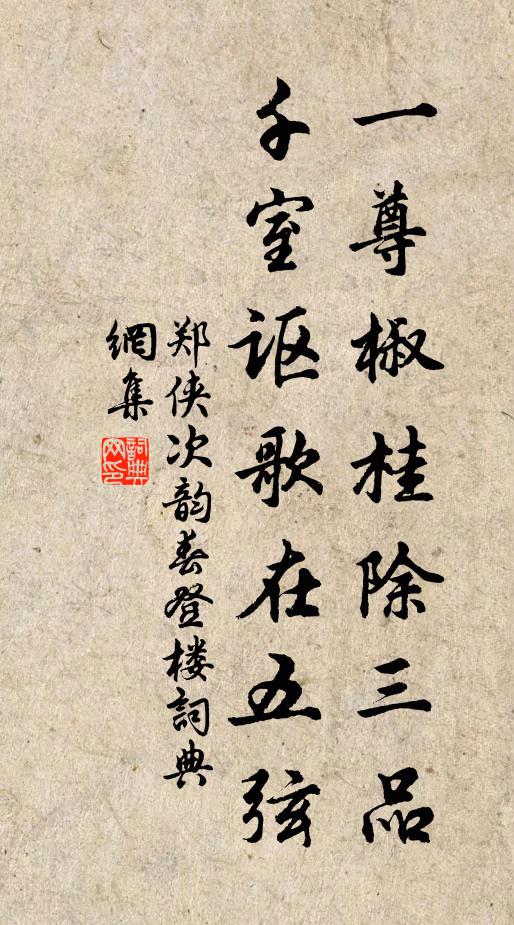 一尊椒桂除三品
千室讴歌在五弦
郑侠次韵春登楼詞典
網集
詞典
网印